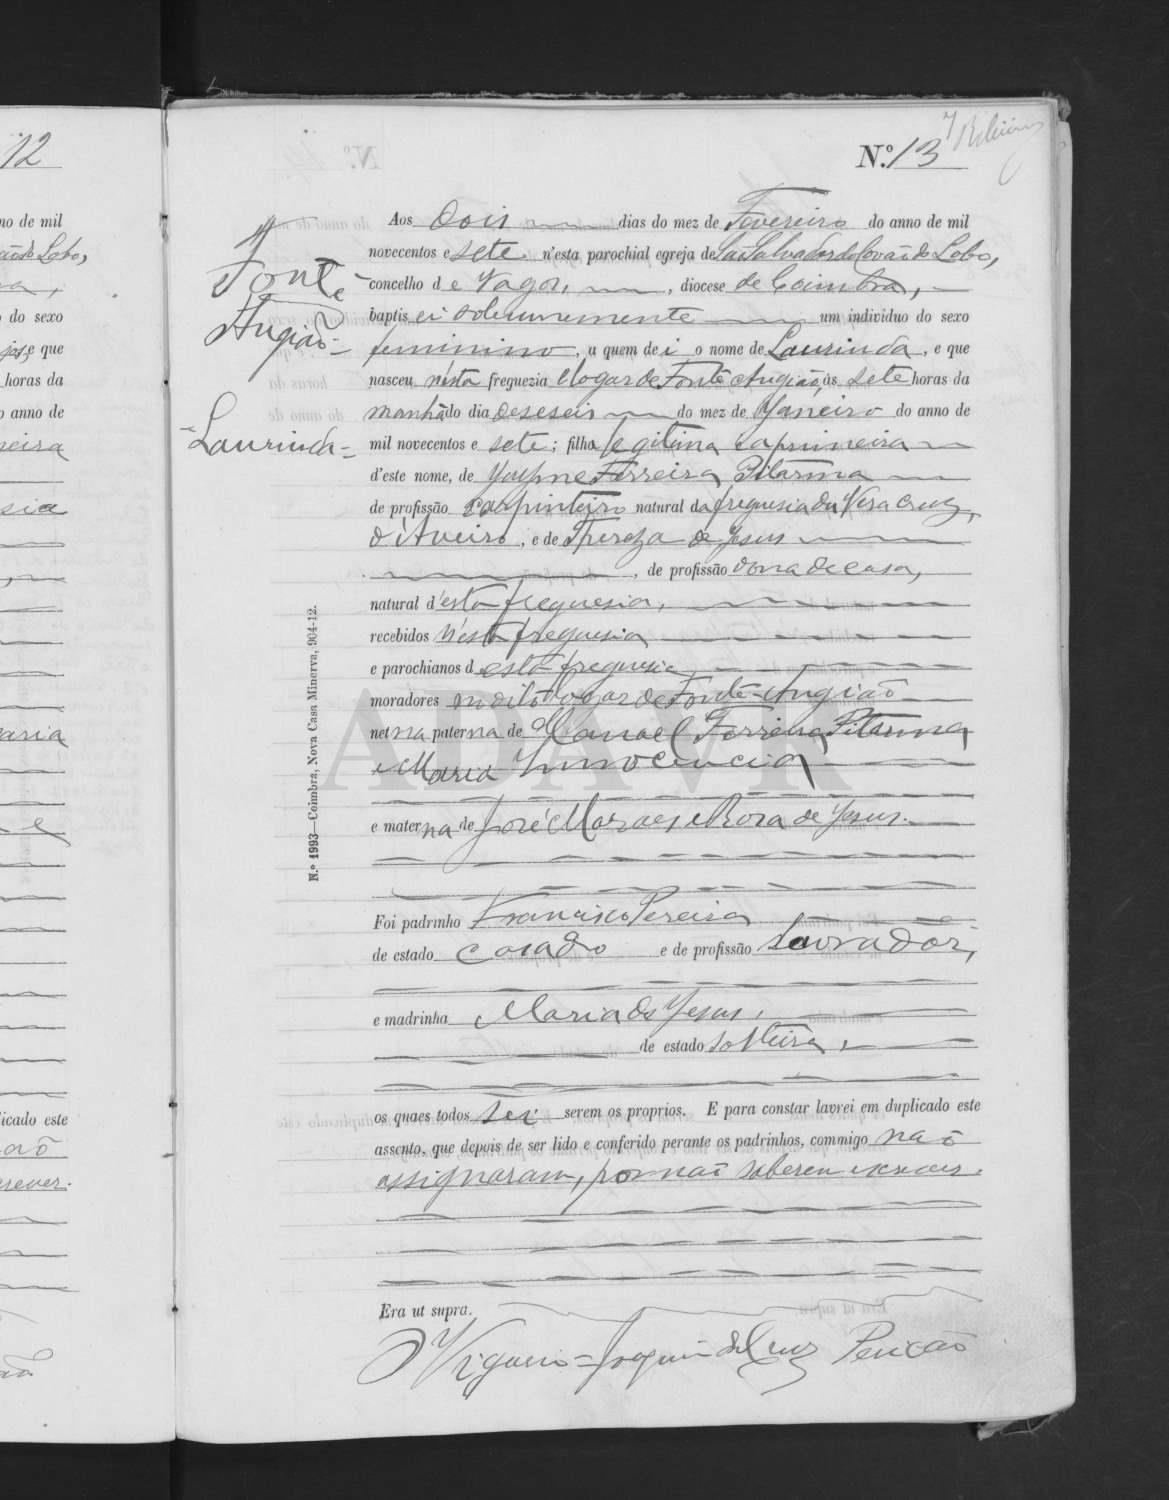 12
no de mil
ão do Lobo,
do sexo
e que
horas da
anno de
neira
sia
aria
licado este
ão
rever.
N.º 13
Fonte
Angião
Laurinda
Aos dois dias do mez de Fevereiro do anno de mil
novecentos e sete n'esta parochial egreja de São Salvador do Covão do Lobo,
concelho de Vagos, , diocese de Coimbra,
baptisei solemnemente um individuo do sexo
feminino, a quem dei o nome de Laurinda, e que
nasceu n'esta freguezia e logar de Fonte Angião, ás sete horas da
manhã do dia deseseis do mez de Janeiro do anno de
mil novecentos e sete; filha legitima e a primeira
d'este nome, de Jayme Ferreira Pitarma
de profissão carpinteiro natural da freguesia da Vera Cruz,
d'Aveiro, e de Thereza de Jesus
, de profissão dona de casa,
natural d'esta freguesia,
recebidos n'esta freguesia
e parochianos d esta freguesia
moradores no dito logar de Fonte Angião
neta paterna de Manoel Ferreira Pitarma
e Maria Innocencia
e materna de José Moraes e Rosa de Jesus.
Foi padrinho Francisco Pereira
de estado casado e de profissão lavrador,
e madrinha Maria de Jesus,
de estado solteira,
os quaes todos sei serem os proprios. E para constar lavrei em duplicado este
assento, que depois de ser lido e conferido perante os padrinhos, commigo não
assignaram, por não saberem escrever.
Era ut supra.
O Vigario = Joaquim da Cruz Pericão
N.º 1993—Coimbra, Nova Casa Minerva, 904-12.
ADAVR